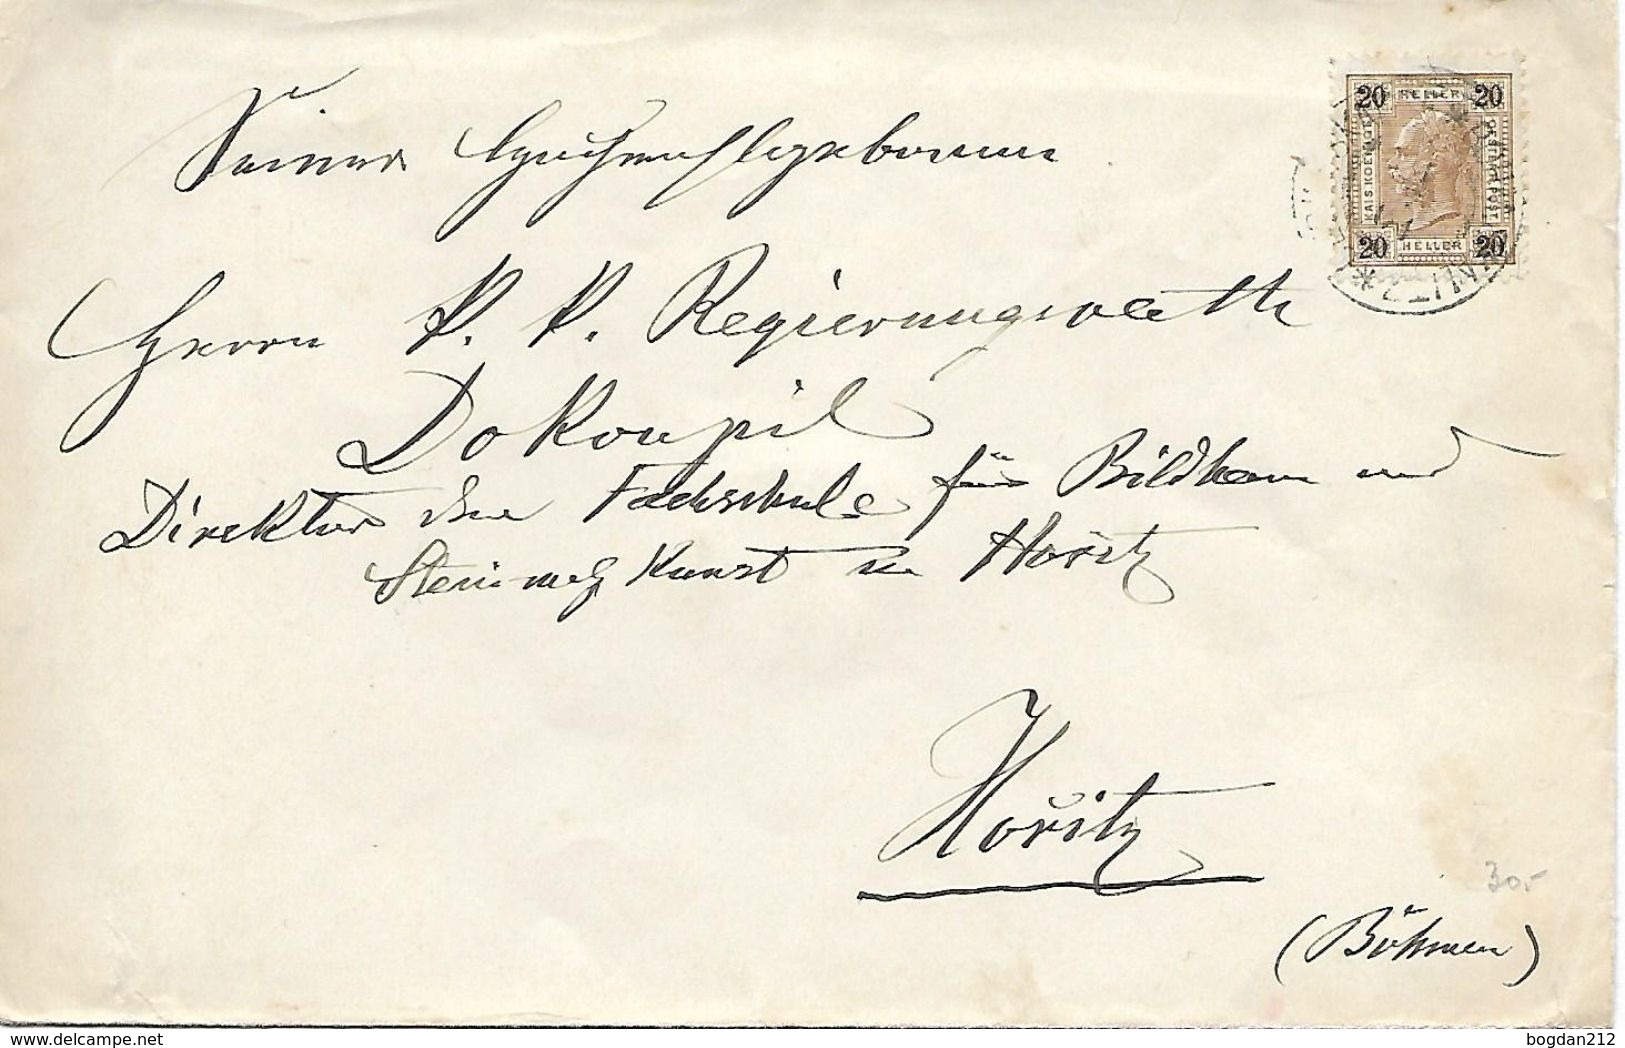 20 HELLER 20
KAIS. KOEN. OESTERR. POST
20 HELLER 20
Seiner Hochwohlgeboren
Herrn K. K. Regierungsrath
Dokoupil
Direktor der Fachschule für Bildhau und
Steinmetz Kunst in Hořitz
Hořitz
30,-
(Böhmen)
delcampe.net
bogdan212